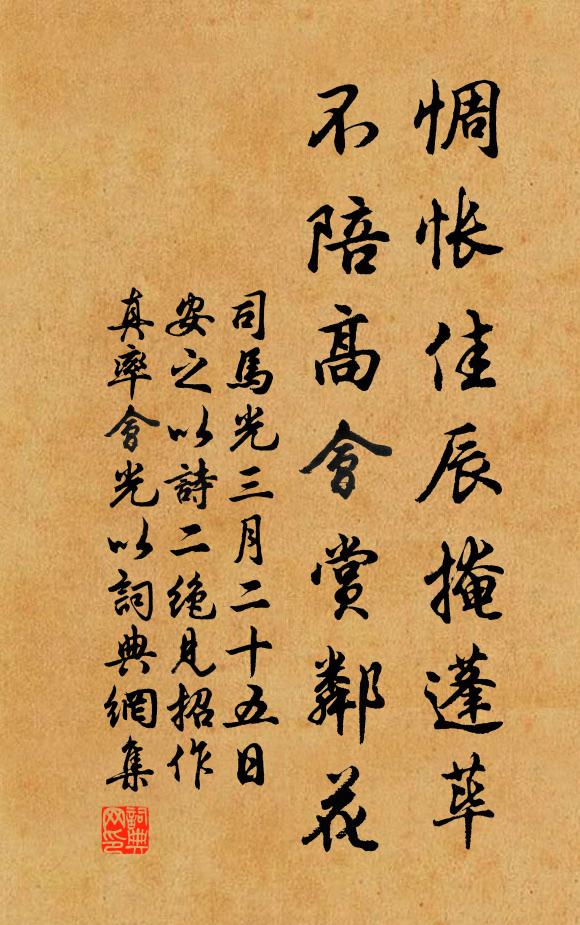 惆悵佳辰掩蓬蓽
不陪高會賞鄰花
司馬光三月二十五日
安之以詩二絶見招作
真率會光以詞典網集
詞典
网印